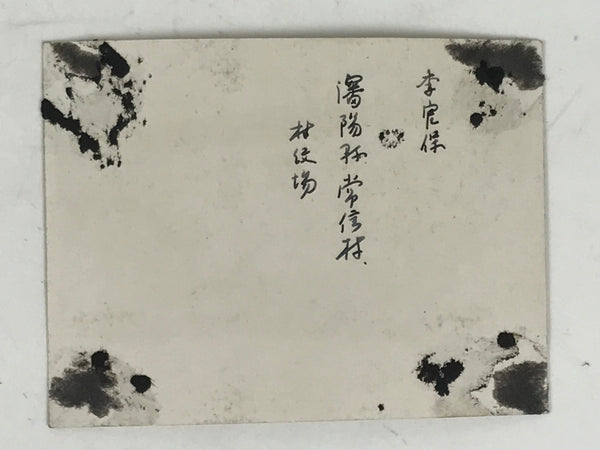 李官保
瀋陽縣常信村
村文場